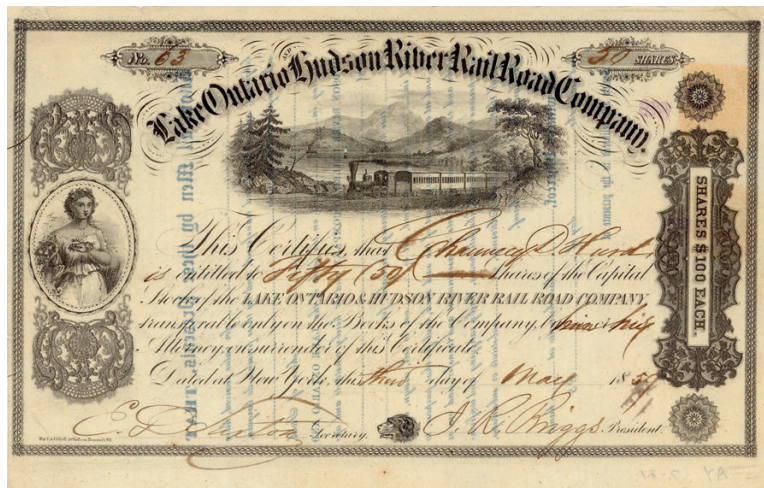 No. 63
50 SHARES
Lake Ontario AND Hudson River Rail Road Company.
SHARES $100 EACH.
This Certifies, that Chauncey D. Hurd,
is entitled to Fifty (50) Shares of the Capital
Stock of the LAKE ONTARIO & HUDSON RIVER RAIL ROAD COMPANY,
transferable only on the Books of the Company, by him or his
Attorney, on surrender of this Certificate.
Dated at New York, this third day of May 1859
Secretary.
J. R. Briggs President.